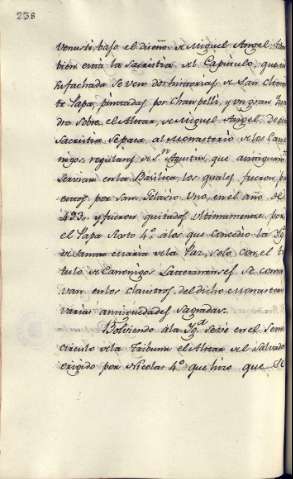 238
venusti bajo el diseño de Miguel Angel
bien está la Sacristia del Capitulo, que en
la fachada se ven dos historias de San Clemen
te Papa, pintadas por Chiampelli, y un gran qua
dro sobre el Altar, de Miguel Angel, de esta
Sacristia se pasa al Monasterio de los Cano
nigos reglares de Sn. Agustin, que antiguamte.
servian en la Basilica, los quales fueron p
por San Gelasio Uno, en el año de
493, y fueron quitados ultimamente por
el Papa Sixto 4º. á los que concedio la Yg
de Santa Maria de la Paz, solo con el ti
tulo de Canonigos Lateranenses. Se conser
van en los claustros del dicho Monasterio
varias antiguedades sagradas.
Bolviendo á la Yga. se vè en el Semi
circulo de la Tribuna el Altar del Salvador
erigido por Nicolas 4º. que hizo que